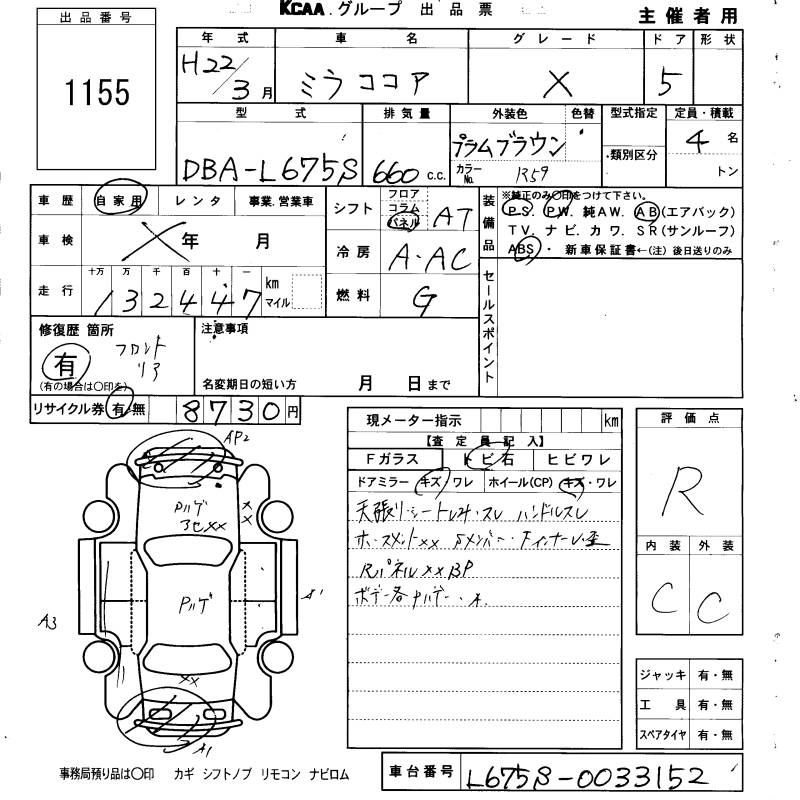 KCAA.グループ 出品票
主催者用
出品番号
1155
年式 車名 グレード ドア 形状
H22/3月 ミラココア X 5
型式 排気量 外装色 色替 型式指定 定員・積載
DBA-L675S 660 c.c. プラムブラウン 類別区分 4名
カラーNo. R59 トン
車歴 自家用 レンタ 事業.営業車
シフト フロア コラム パネル AT
装備品 ※純正のみ〇印をつけて下さい。
PS. PW. 純AW. AB(エアバック)
TV. ナビ. カワ. SR(サンルーフ)
ABS ・ 新車保証書←(注)後日送りのみ
車検 X 年 月
冷房 A・AC
走行 十万 万 千 百 十 一 km マイル
132447
燃料 G
セールスポイント
修復歴 箇所
有 フロント リア
(有の場合は〇印を)
注意事項
名変期日の短い方 月 日まで
リサイクル券 有・無 8730円
現メーター指示 km
【査定員記入】
Fガラス トビ石 ヒビワレ
ドアミラー キズ・ワレ ホイール(CP) キズ・ワレ
天張り・シート ハンドルスレ
XX
RパネルXXBP
ボデー各
評価点
R
内装 外装
C C
ジャッキ 有・無
工具 有・無
スペアタイヤ 有・無
AP2
XX
A3
A1
XX
A1
事務局預り品は〇印 カギ シフトノブ リモコン ナビロム
車台番号 L675S-0033152